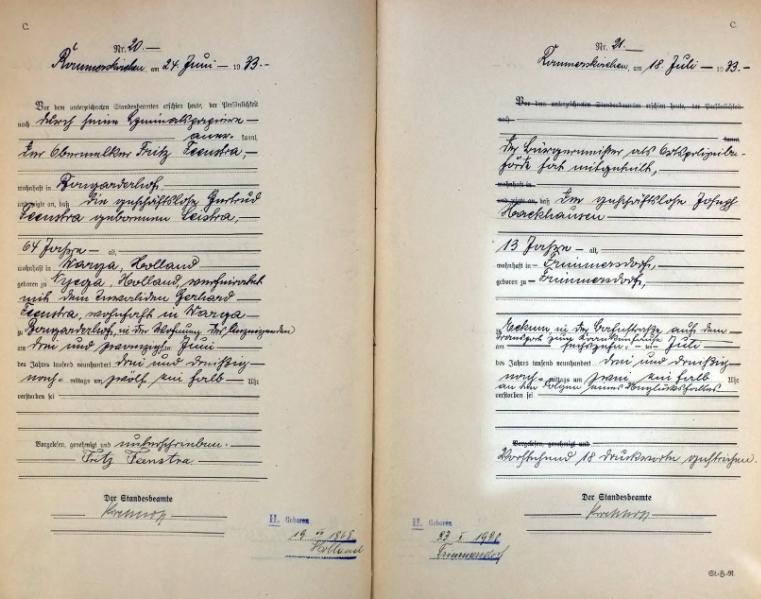 C.
Nr. 20.
Rommerskirchen, am 24. Juni 1933.
Vor dem unterzeichneten Standesbeamten erschien heute, der Persönlichkeit
nach durch seine Originalpapiere
aner- kannt,
Der Obermelker Fritz Feenstra,
wohnhaft in Bongarderhof,
und zeigte an, daß die geschäftslose Gertrud
Feenstra geborenen Leistra,
64 Jahre alt,
wohnhaft in Warga, Holland
geboren zu Nyega, Holland, verheiratet
mit dem Invaliden Gerhard
Feenstra, wohnhaft in Warga
zu Bongarderhof, in der Wohnung des Anzeigenden
am drei und zwanzigsten Juni
des Jahres tausend neunhundert drei und dreißig
nach mittags um zwölf ein halb Uhr
verstorben sei
Vorgelesen, genehmigt und unterschrieben.
Fritz Feenstra.
Der Standesbeamte
II. Geboren
Holland
C.
Nr. 21.
Rommerskirchen, am 18. Juli 1933.
Vor dem unterzeichneten Standesbeamten erschien heute, der Persönlichkeit
nach
kannt,
Der Bürgermeister als Ortspolizeibe-
hörde hat mitgeteilt,
wohnhaft in
und zeigte an, daß der geschäftslose Joseph
Hackhausen
13 Jahre alt,
wohnhaft in Frimmersdorf,
geboren zu Frimmersdorf,
zu Eckum in der Bahnstraße auf dem
Transport zum Krankenhause
am sechszehn ten Juli
des Jahres tausend neunhundert drei und dreißig
nach mittags um zwei ein halb Uhr
an den Folgen eines Unglücksfalles
verstorben sei
Vorgelesen, genehmigt und
Vorstehend 18 Druckworte gestrichen.
Der Standesbeamte
II. Geboren
Frimmersdorf
St-H-R.